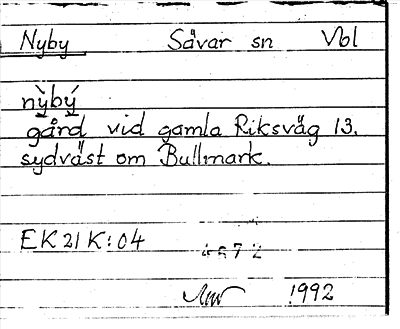 Nyby Sävar sn Vbl
nỳbý
gård vid gamla Riksväg 13.
sydväst om Bullmark.
EK 21 K:04
1992